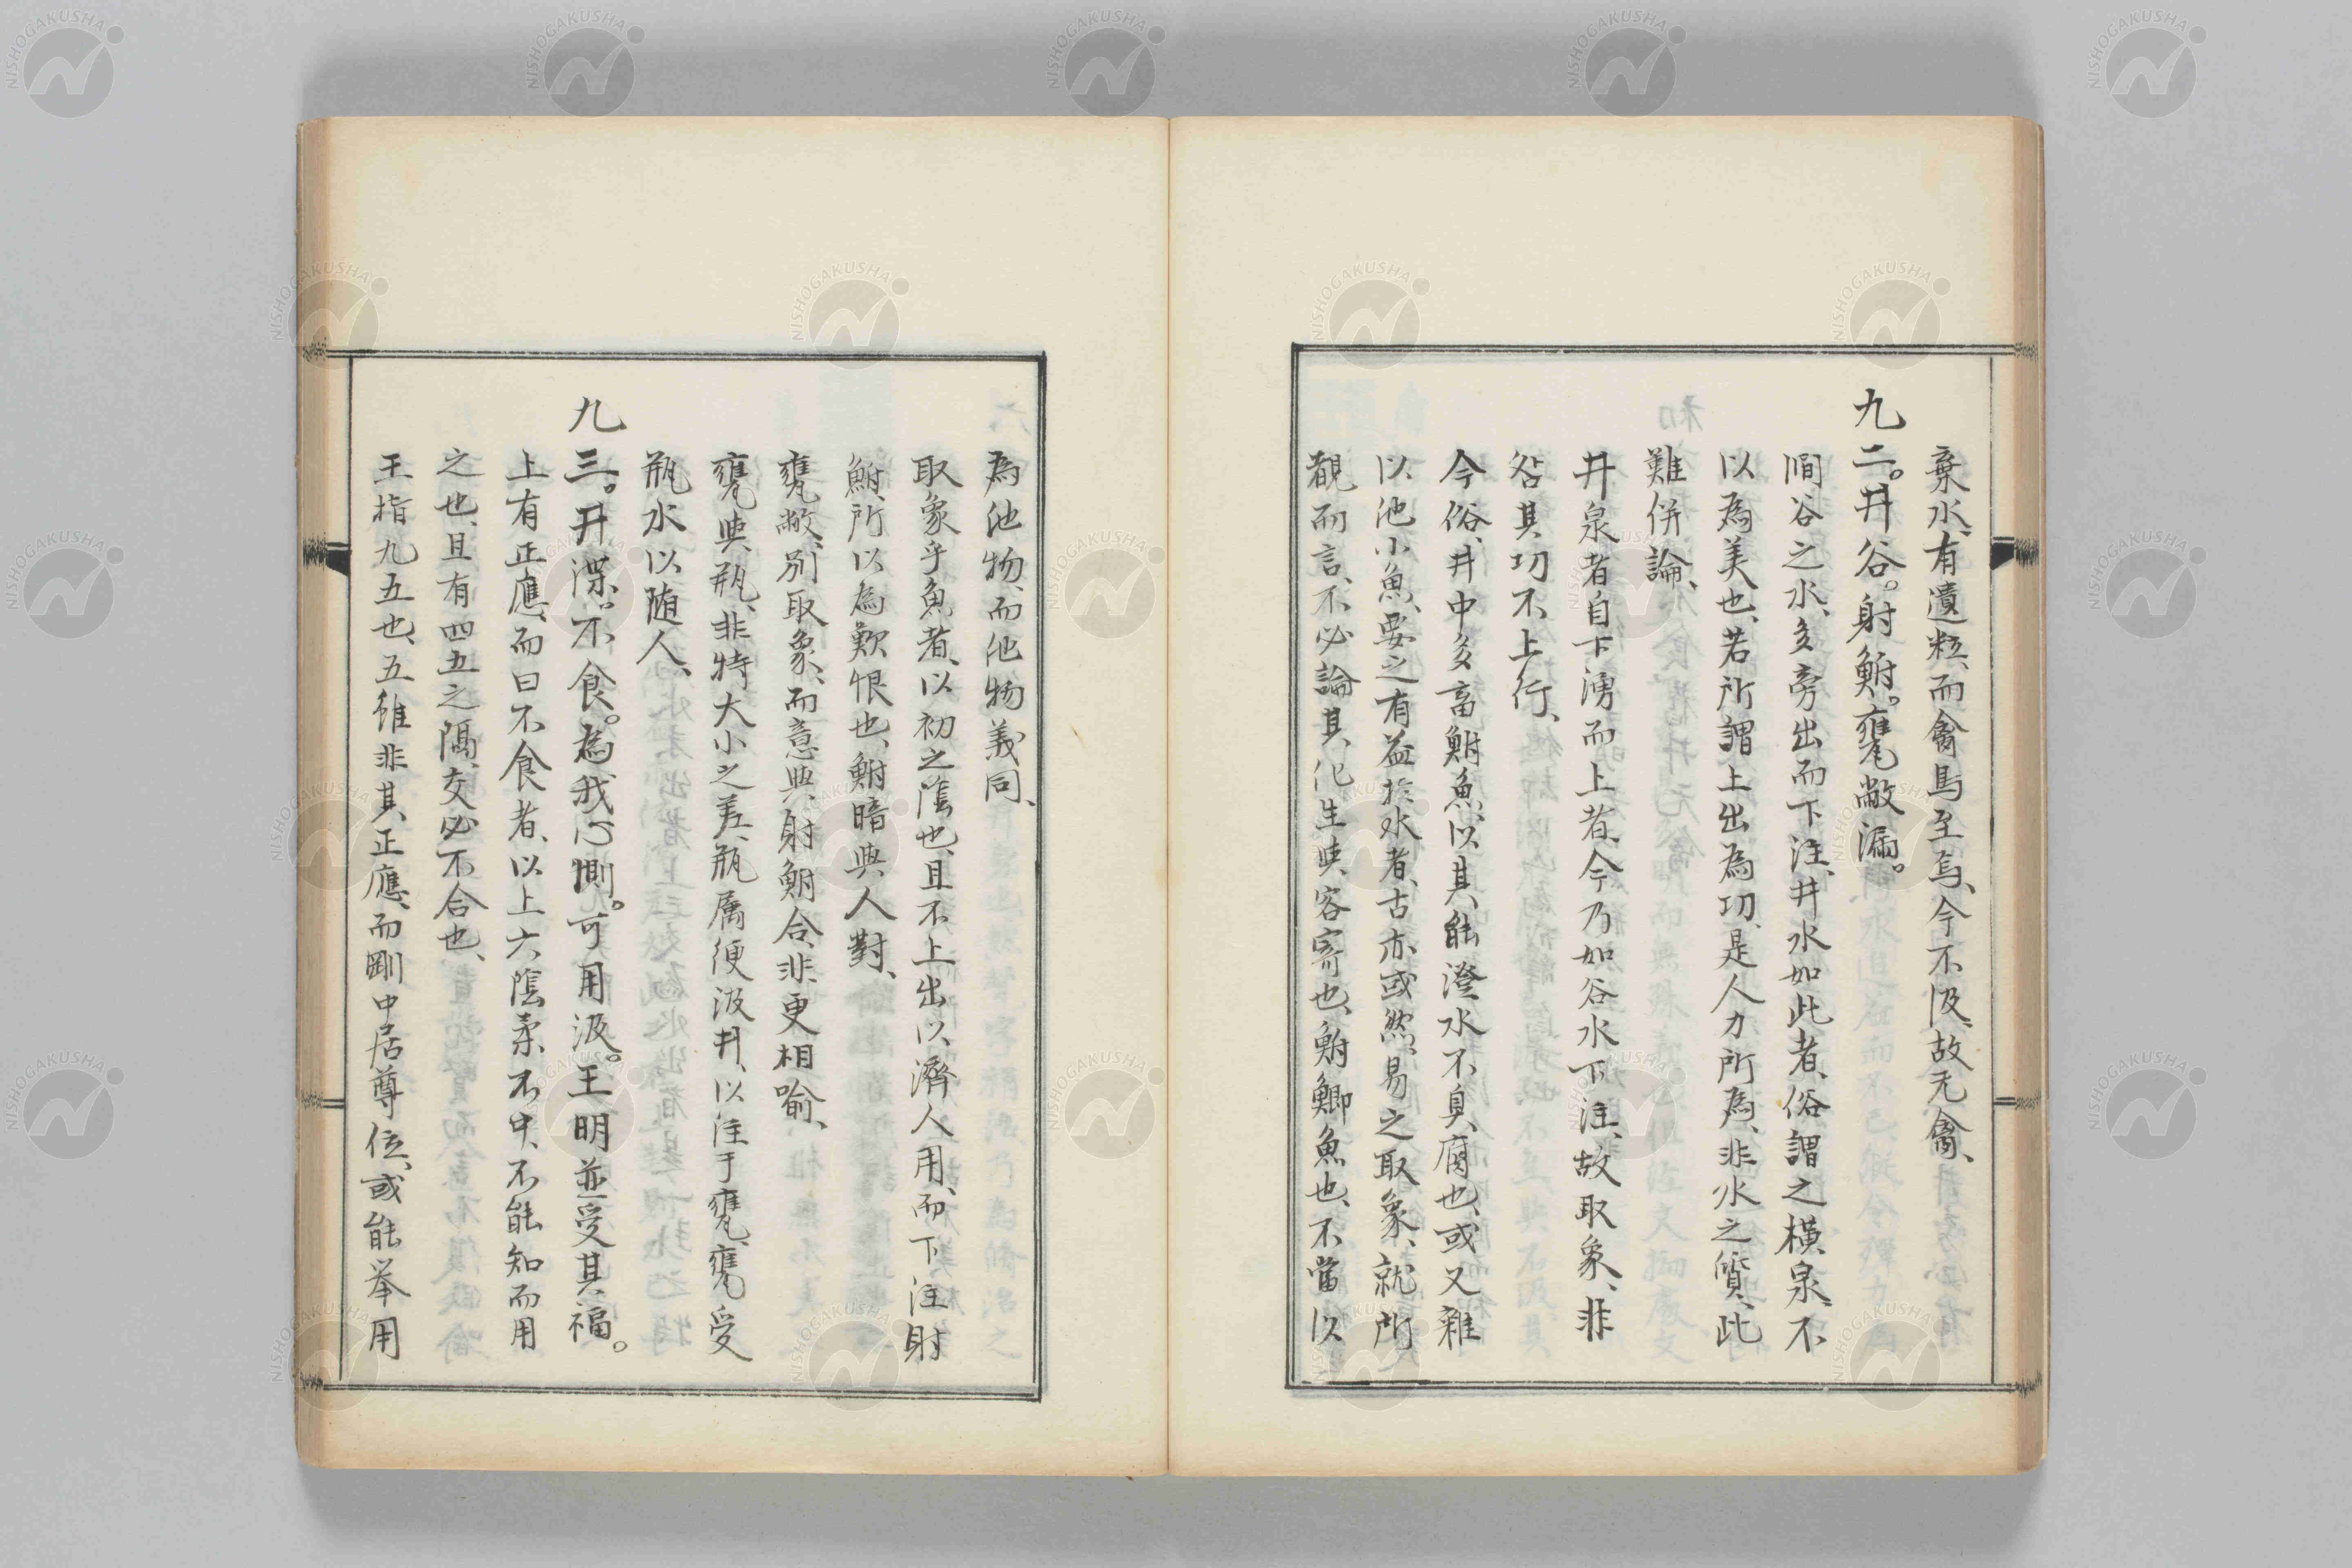 棄水、有遺粒、而禽馬至焉、今不汲、故无禽、
九二。井谷。射鮒。甕敝漏。
澗谷之水、多旁出而下注、井水如此者、俗謂之橫泉、不
以為美也、若所謂上出為功、是人力所為、非水之質、此
難併論、
井泉者自下湧而上者、今乃如谷水下注、故取象、非
咎其功不上行、
今俗、井中多畜鮒魚、以其能澄水不臭腐也、或又雜
以池小魚、要之有益於水者、古亦或然、易之取象、就所
觀而言、不必論其化生與客寄也、鮒鯽魚也、不當以
為池物、而池物義同、
取象乎魚者、以初之陰也、且不上出以濟人用、而下注射
鮒、所以為歎恨也、鮒暗與人對、
甕敝、別取象、而意與射鮒合、非更相喻、
甕與瓶、非特大小之差、瓶属便汲井、以注于甕、甕受
瓶水以随人、
九三。井渫。不食。為我心惻。可用汲。王明並受其福。
上有正應、而曰不食者、以上六陰柔不中、不能知而用
之也、且有四五之隔、交必不合也、
王指九五也、五雖非其正應、而剛中居尊位、或能举用
NISHOGAKUSHA